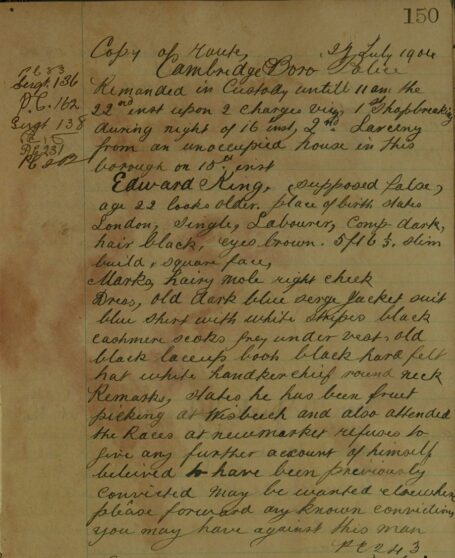 150
Copy of Route, 2 July 1904
Cambridge Boro Police
Sergt 136
P.C. 162
Sergt 138
Remanded in Custody untill 11 am the
22nd inst upon 2 charges viz, 1st Shopbreaking
during night of 16 inst, 2nd Larceny
from an unoccupied house in this
borough on 15th inst
Edward King, (supposed false,
age 22 looks older. place of birth states
London, single, Labourer, Comp dark,
hair black, eyes brown. 5ft 6 3/4, slim
build, square face,
Marks, hairy mole right cheek
Dress, old dark blue serge Jacket suit
blue shirt with white stripes black
cashmere socks grey under vest, old
black laceup boots black hard felt
hat white handkerchief round neck
Remarks, states he has been fruit
picking at Wisbeech and also attended
the Races at newmarket refuses to
give any further account of himself
beleived to have been previously
convicted may be wanted elsewhere
please forward any known convictions
you may have against this man
PC 243